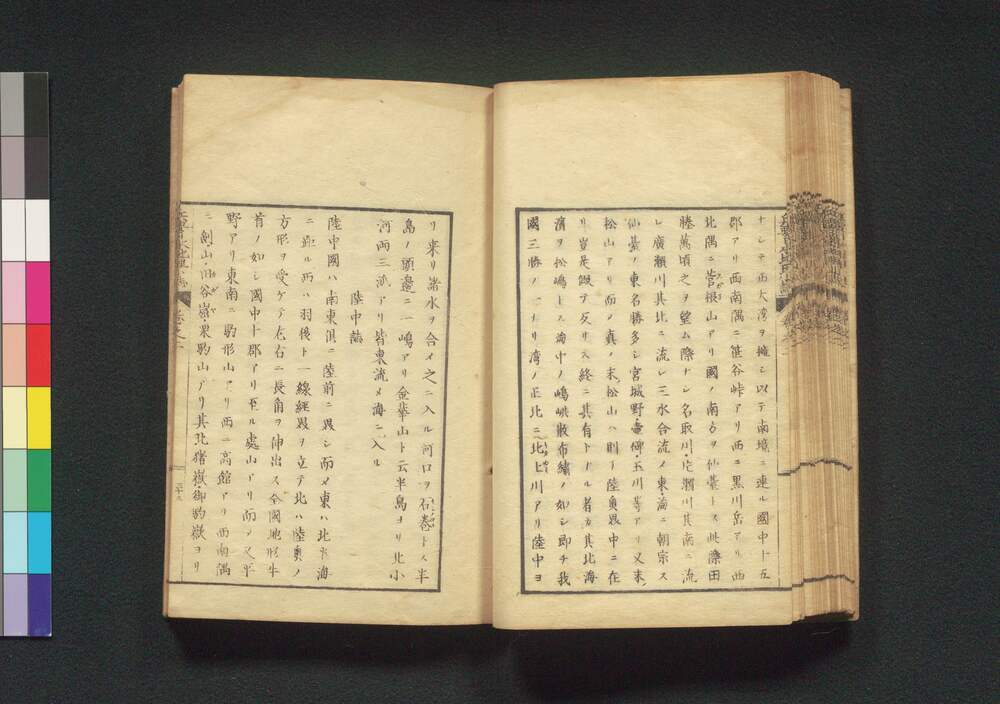 ナシテ西大湾ヲ擁シ以テ南境ニ連ル國中十五
郡アリ西南隅ニ笹谷峠アリ西ニ黒川岳アリ西
北隅ニ菅根山アリ國ノ南ヲ仙臺トス此際田
塍萬頃之ヲ望ム際ナシ名取川其南ニ流
レ廣瀬川其北ニ流レ三水合流メ東海ニ朝宗ス
仙臺ノ東名勝多シ宮城野壷碑玉川等アリ又末
松山アリ而ノ真ノ末松山ハ則チ陸奥界中ニ在
リ豈是嶽ア反リス終ニ其有トナル者カ其北海
濱ヲ松嶋トス海中ノ嶋嶼散布繍ノ如シ即チ我
國三勝ノ一ナリ湾ノ正北ニ北上川アリ陸中ヨ
リ来リ諸水ヲ合メ之ニ入ル河口ヲ石巻トス半
島ノ頭邊ニ一嶋アリ金華山ト云半島ヨリ北小
河両三流アリ皆東流メ海ニ入ル
陸中誌
陸中國ハ南東俱ニ陸前ニ界シ而メ東ハ北半海
ニ距ル西ハ羽後ト一線經界ヲ立テ北ハ陸奥ノ
方形ヲ受ケテ左右ニ長角ヲ伸出ス全國地形牛
首ノ如シ國中十郡アリ至ル處山アリ而ノ又平
野アリ東南ニ駒形山アリ西ニ高館アリ西南隅
ニ剣山由谷嶽栗駒山アリ其北猪嶽御駒嶽ヨリ